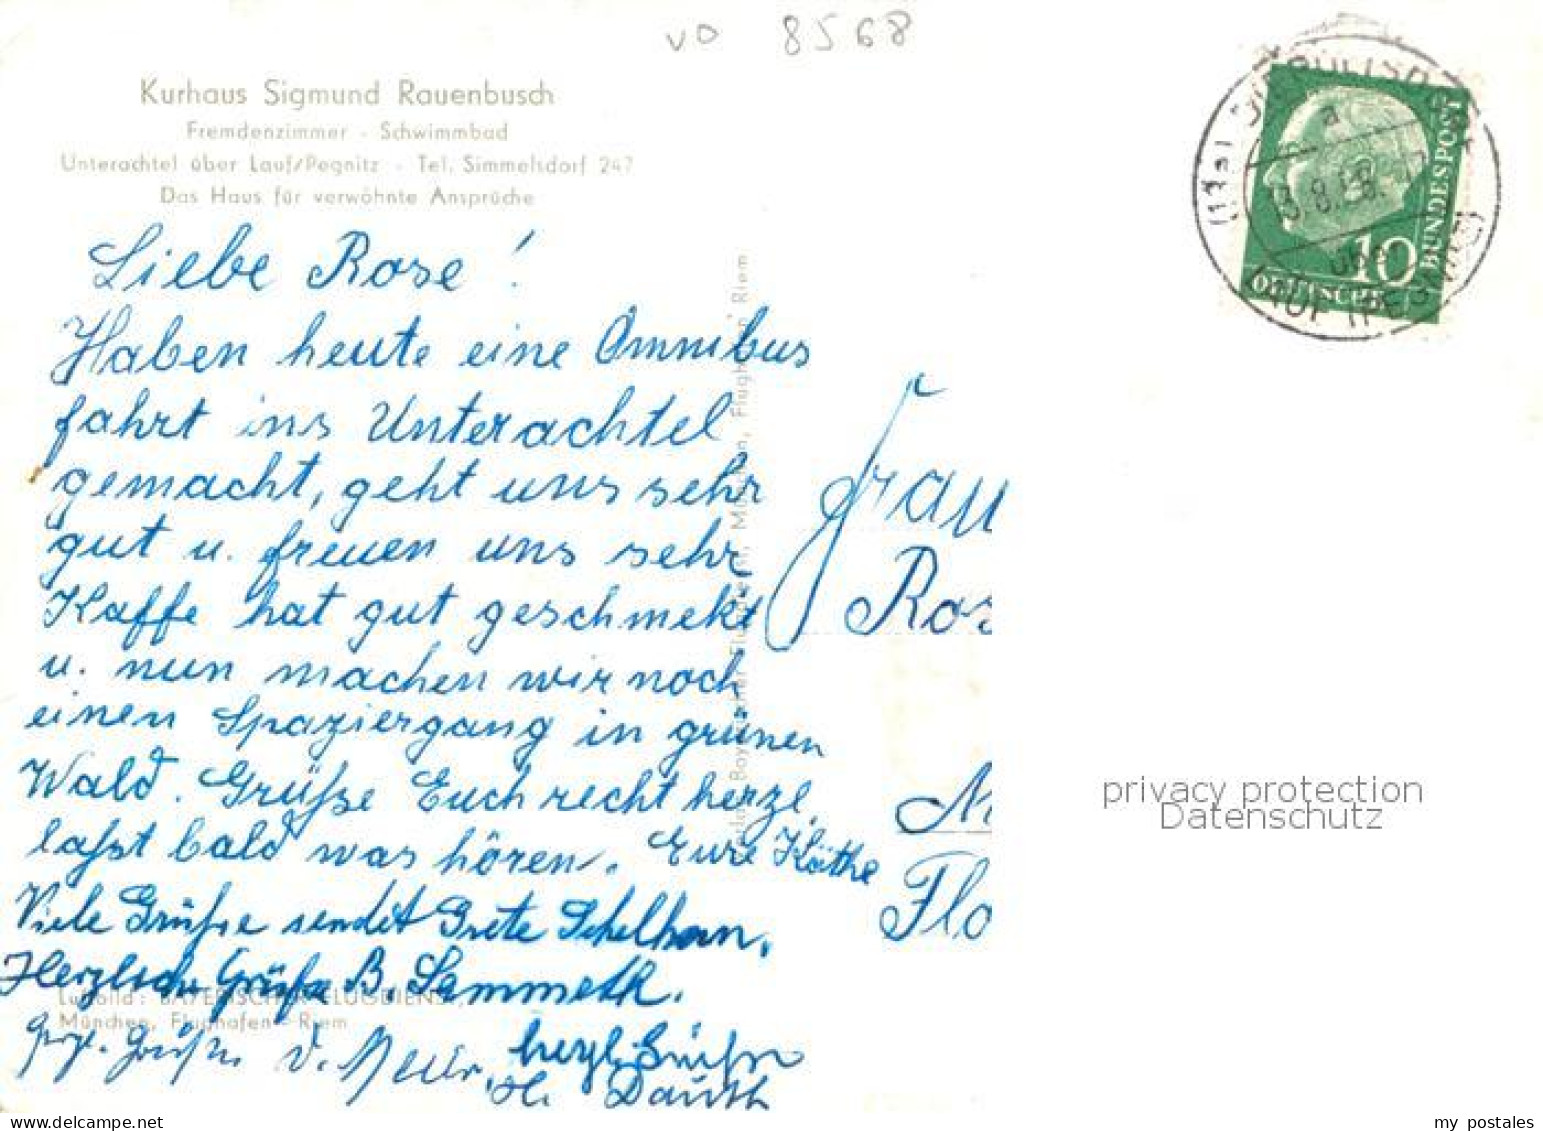 vo 8568
Kurhaus Sigmund Rauenbusch
Fremdenzimmer - Schwimmbad
Unterachtel über Lauf/Pegnitz - Tel. Simmelsdorf 247
Das Haus für verwöhnte Ansprüche
Liebe Rose !
Haben heute eine Omnibus
fahrt ins Unterachtel
gemacht, geht uns sehr
gut u. freuen uns sehr
Kaffe hat gut geschmekt
u. nun machen wir noch
einen Spaziergang in grünen
Wald. Grüße Euch recht herzl.
laßt bald was hören. Eure Käthe
Viele Grüße sendet Grete Schelhorn.
Herzliche Grüße B. Sammeth.
Herzl. Grüße D. Meier.
herzl. Grüße
H. Dauth
Luftbild: BAYERISCHER FLUGDIENST
München, Flughafen - Riem
Verlag Bayerischer Flugdienst, München, Flughafen Riem
Frau
Ros
Flo
a
13.8.58.-17
über
LAUF (PEGNITZ)
DEUTSCHE
BUNDESPOST
10
privacy protection
Datenschutz
my postales